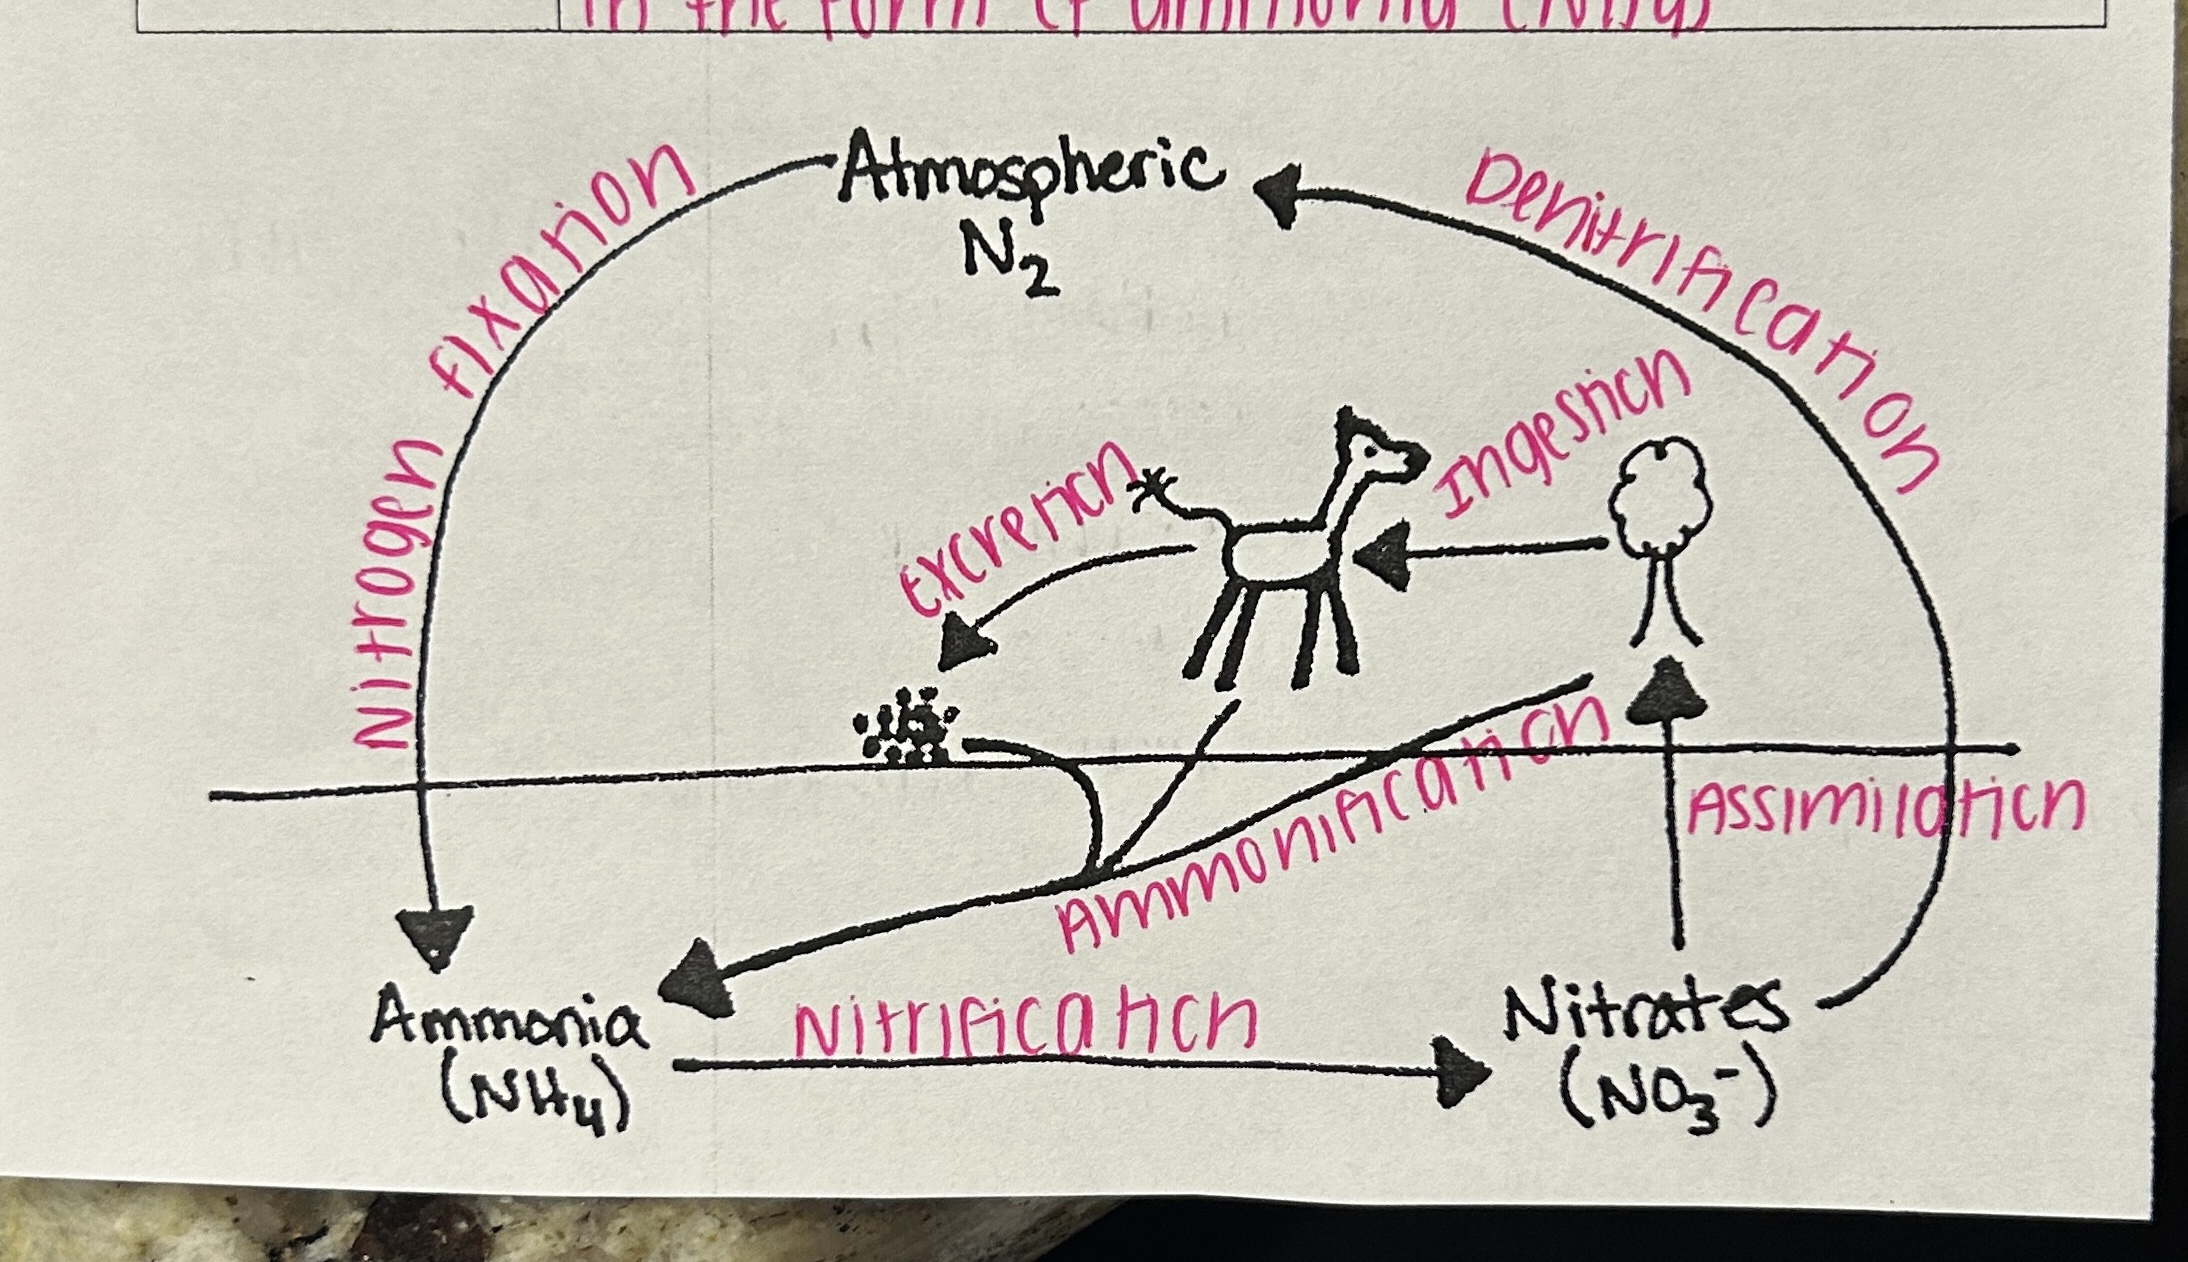 in the form of ammonia (NH4)
Atmospheric
N2
Nitrogen fixation
Denitrification
Ingestion
Excretion
Ammonification
Assimilation
Ammonia
(NH4)
Nitrification
Nitrates
(NO3-)